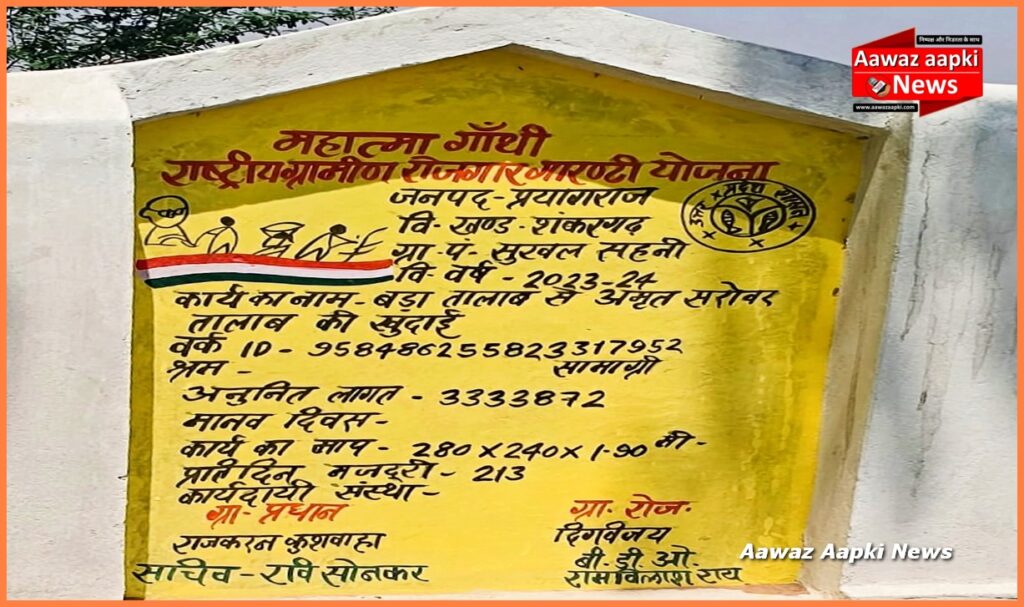 निष्पक्ष और निडरता के साथ
Aawaz aapki
News
www.aawazaapki.com
महात्मा गाँधी
राष्ट्रीय ग्रामीण रोजगार गारण्टी योजना
जनपद - प्रयागराज
उत्तर प्रदेश शासन
वि - खण्ड - शंकरगढ
ग्रा - पं - सुरवल सहनी
वि - वर्ष - 2023-24
कार्य का नाम - बड़ा तालाब से अमृत सरोवर
तालाब की खुदाई
वर्क ID - 958486255823317952
श्रम - सामाग्री
अनुनित लागत - 3333872
मानव दिवस -
कार्य का माप - 280 X 240 X 1-90 मी -
प्रति दिन मजदूरी - 213
कार्यदायी संस्था -
ग्रा - प्रधान ग्रा - रोज -
राजकरन कुशवाहा दिगविजय
सचिव - रवि सोनकर बी. डी ओ.
रामविलाश राय
Aawaz Aapki News